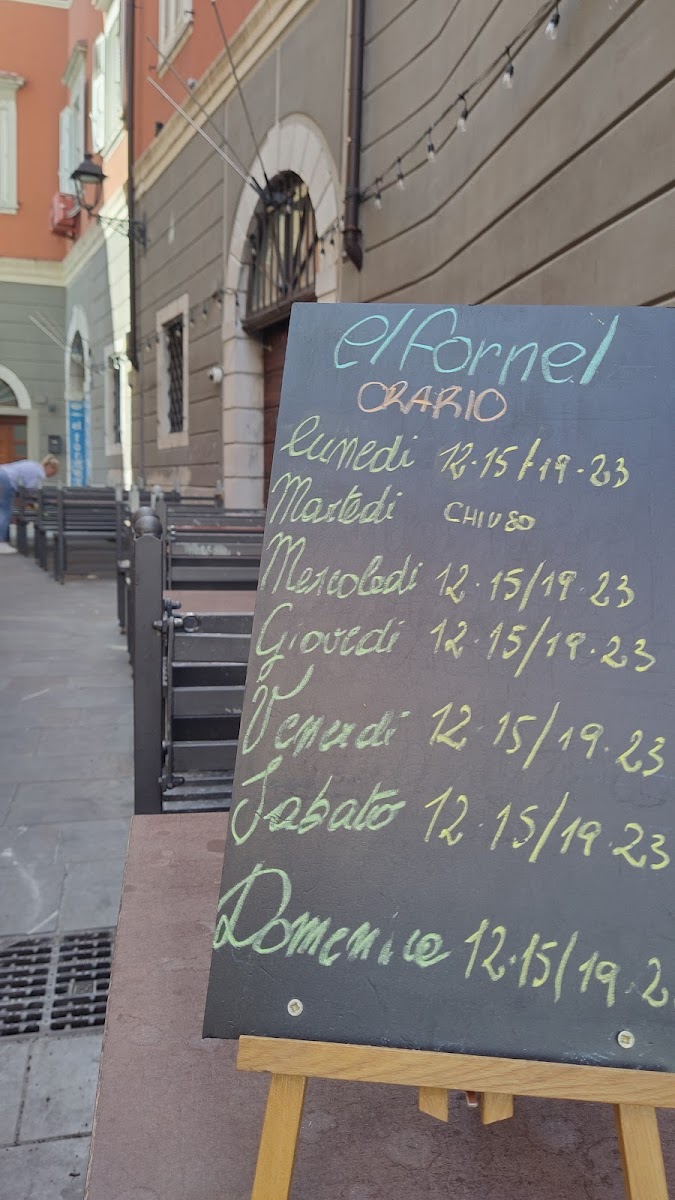 el fornel
ORARIO
Lunedi 12.15/19.23
Martedi CHIUSO
Mercoledi 12.15/19.23
Giovedi 12.15/19.23
Venerdi 12.15/19.23
Sabato 12.15/19.23
Domenica 12.15/19.2